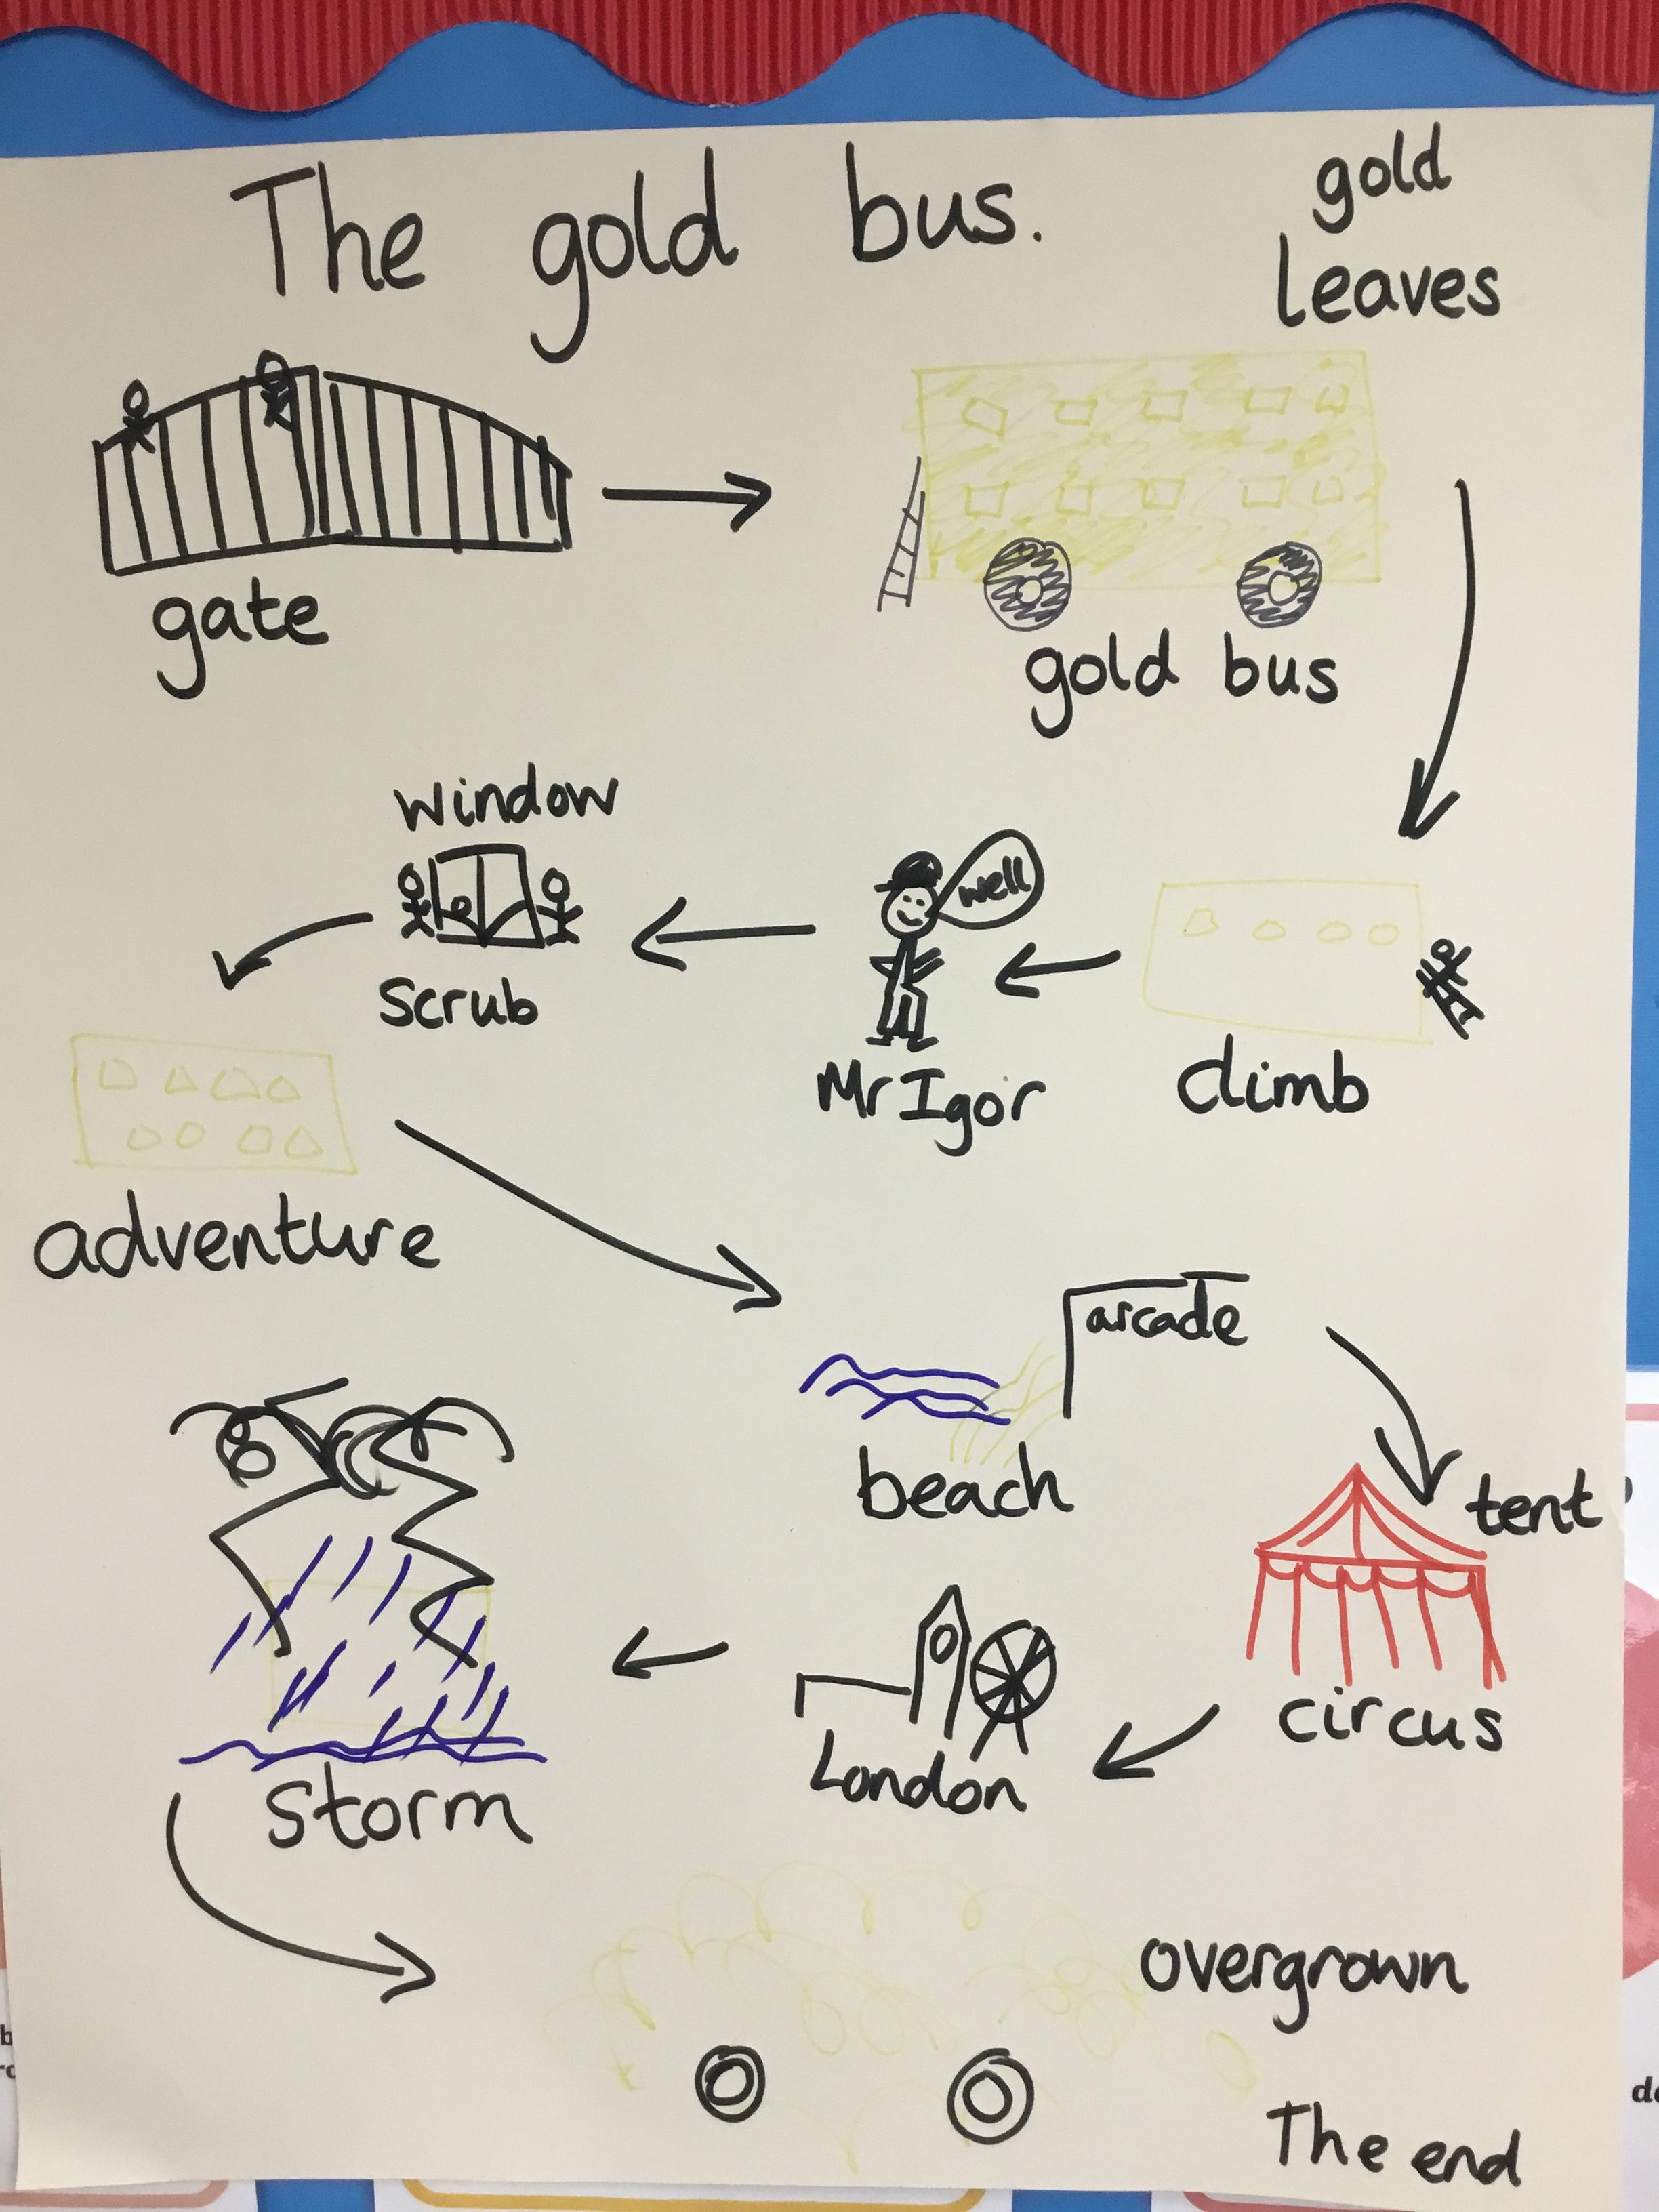 The gold bus.
gold
leaves
gate
gold bus
climb
well
Mr Igor
window
scrub
adventure
arcade
beach
tent
circus
London
Storm
overgrown
The end